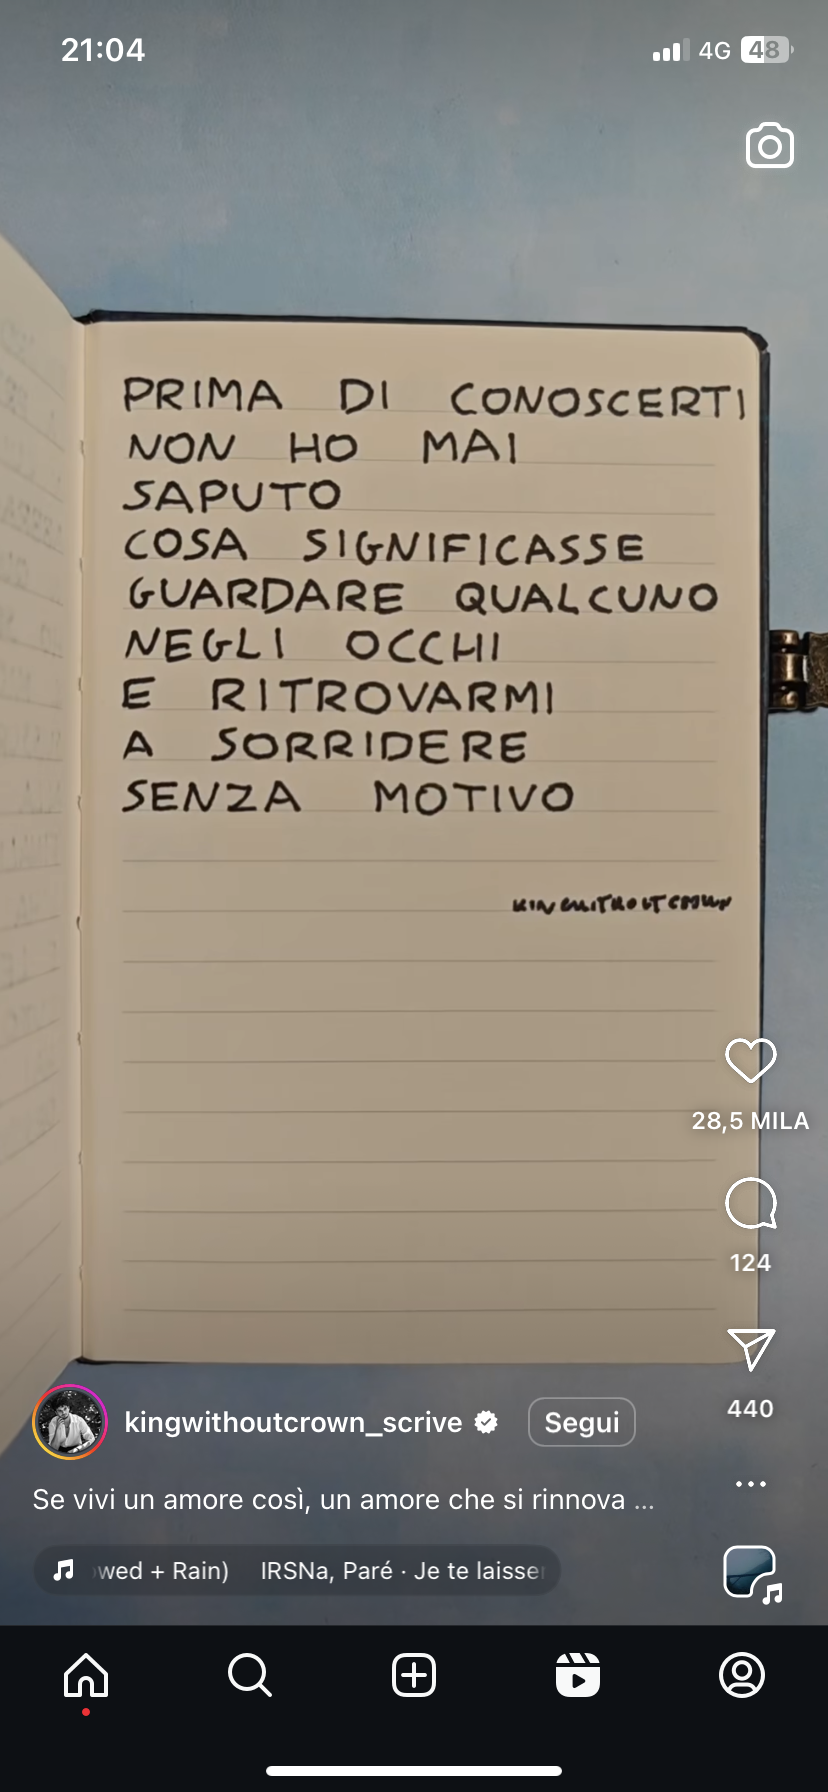 21:04
4G 48
PRIMA DI CONOSCERTI
NON HO MAI
SAPUTO
COSA SIGNIFICASSE
GUARDARE QUALCUNO
NEGLI OCCHI
E RITROVARMI
A SORRIDERE
SENZA MOTIVO
28,5 MILA
124
440
kingwithoutcrown_scrive Segui
Se vivi un amore così, un amore che si rinnova ...
wed + Rain) IRSNa, Paré · Je te laisse